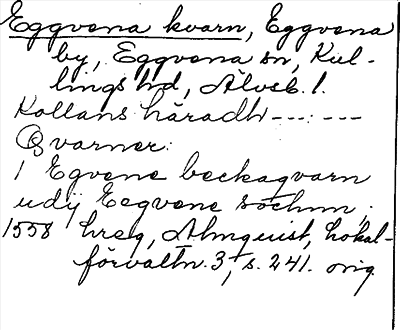 Eggvena kvarn, Eggvena
by, Eggvena sn, Kul-
lings hd, Älvsb. l.
Kollans häradh --- : ---
Qvarner:
1 Egvene beckaqvarn
udij Eegvene sochnn;
1558 hreg, Almquist, Lokal-
förvaltn. 3, s. 241. orig.